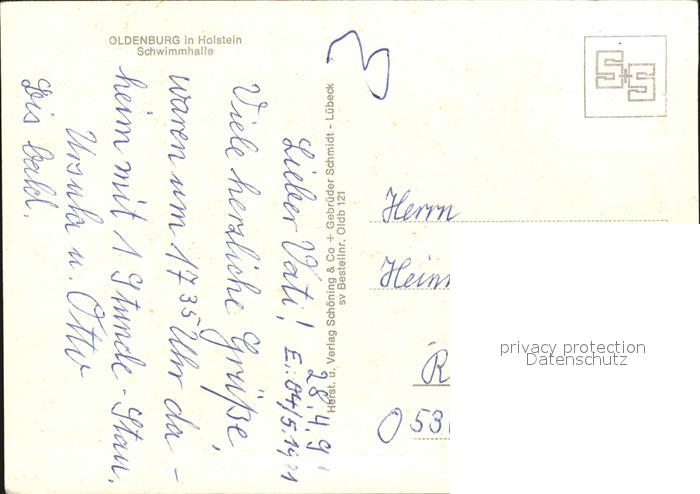 OLDENBURG in Holstein
Schwimmhalle
28.4.91
E: 04/5.1991
Lieber Vati!
Viele herzliche Grüße,
waren um 17 35 Uhr da-
heim mit 1 Stunde-Stau.
Ursula u. Otto
Bis bald.
Herst. u. Verlag Schöning & Co + Gebrüder Schmidt - Lübeck
sv Bestellnr. Oldb 121
S+S
3
Herrn
Hein
R
O 53
privacy protection
Datenschutz